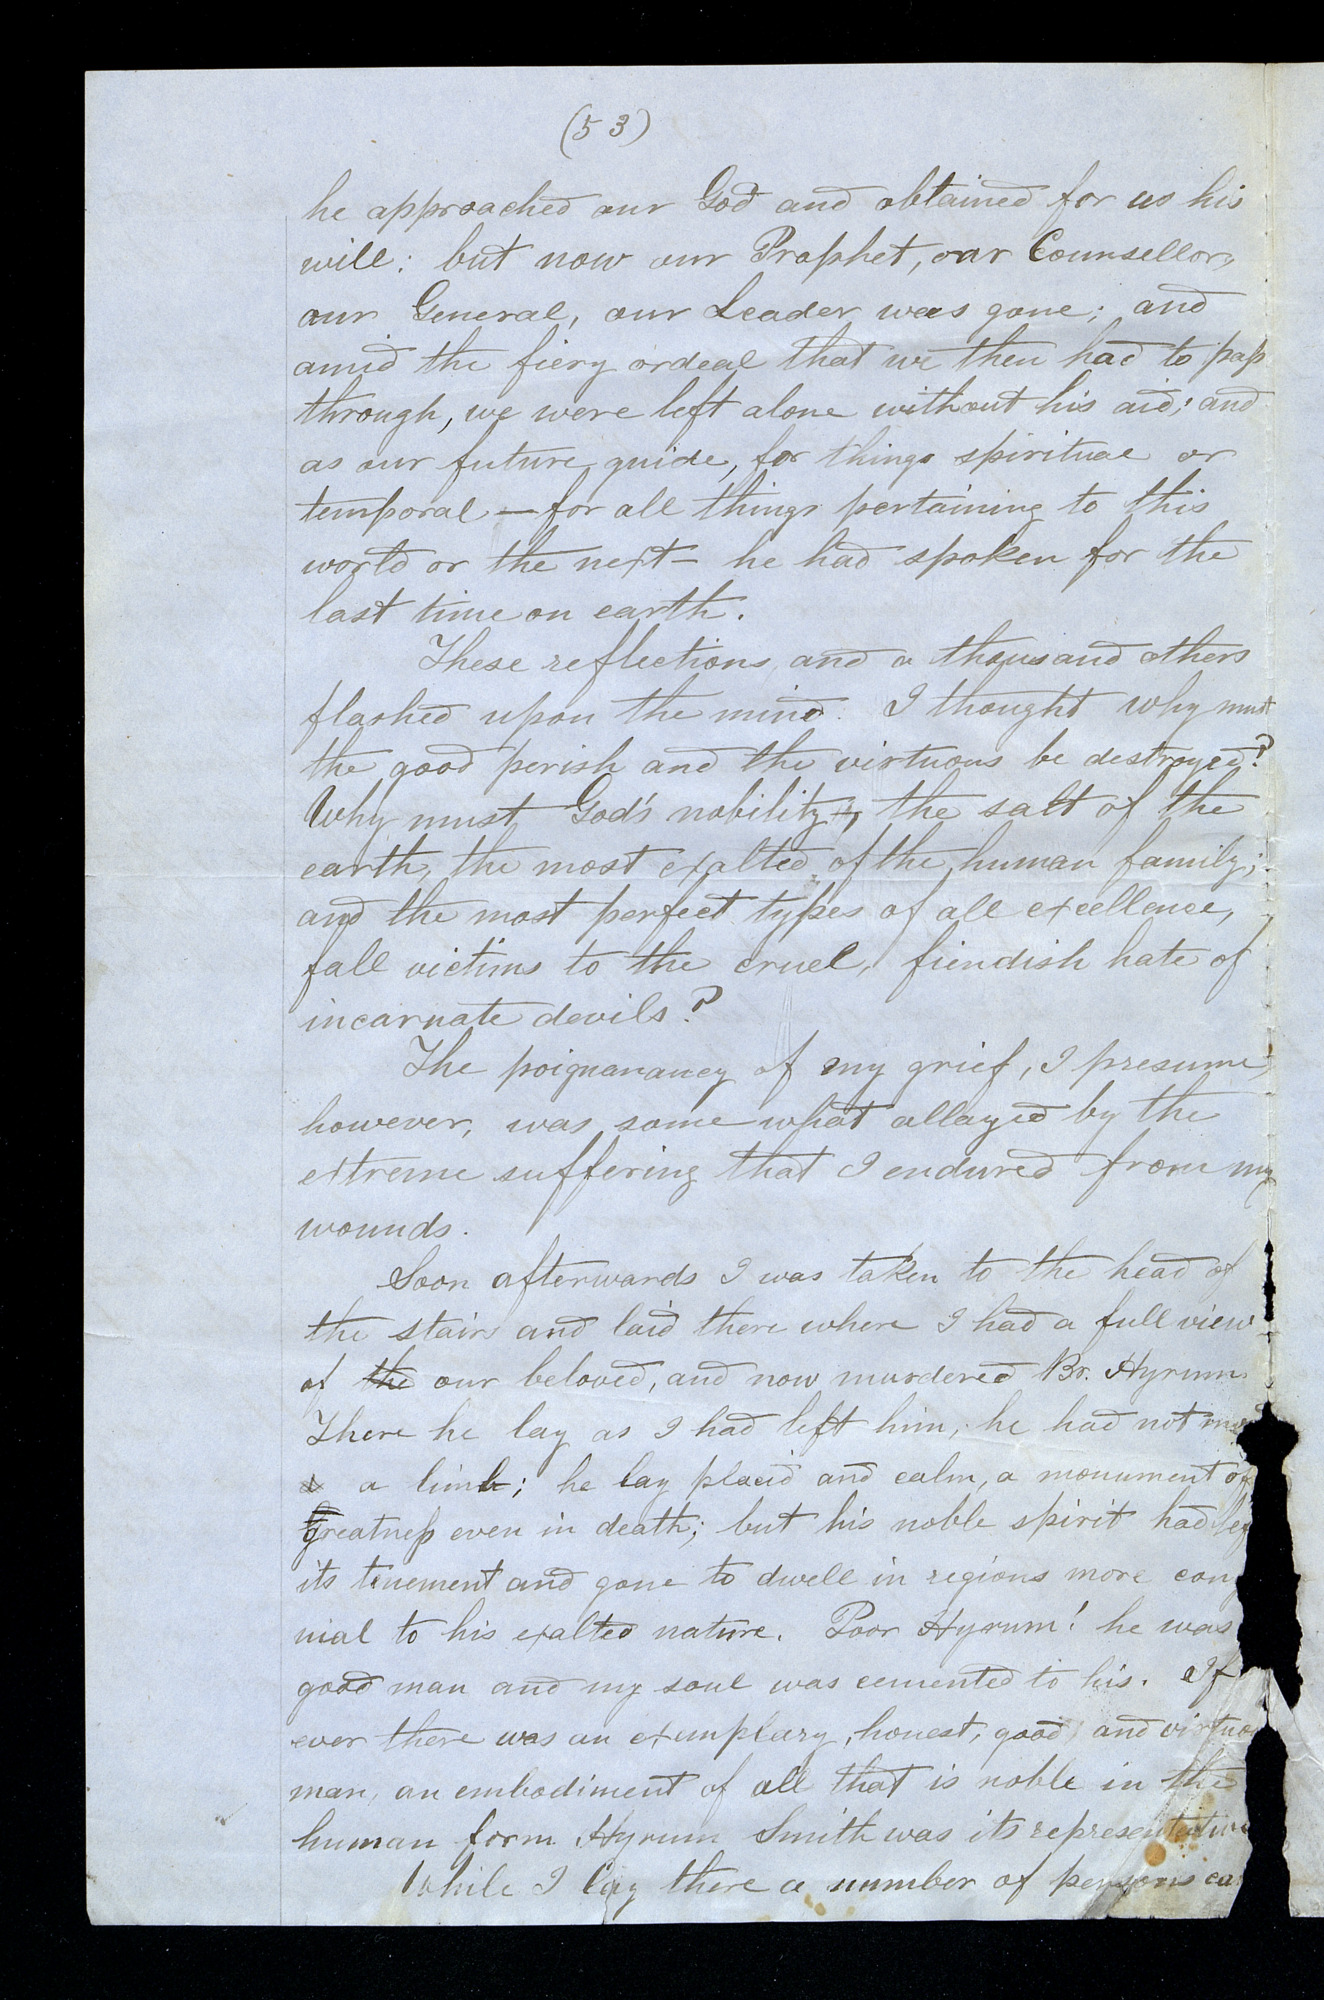 (53)
he approached our God and obtained for us his
will: but now our Prophet, our Counsellor,
our General, our Leader was gone; and
amid the fiery ordeal that we then had to pass
through, we were left alone without his aid; and
as our future guide, for things spiritual or
temporal — for all things pertaining to this
world or the next — he had spoken for the
last time on earth.
These reflections and a thousand others
flashed upon the mind. I thought why must
the good perish and the virtuous be destroyed?
Why must God's nobility, the salt of the
earth, the most exalted of the human family,
and the most perfect types of all excellence,
fall victims to the cruel, fiendish hate of
incarnate devils?
The poignanancy of my grief, I presume,
however, was some what allayed by the
extreme suffering that I endured from my
wounds.
Soon afterwards I was taken to the head of
the stairs and laid there where I had a full view
of the our beloved, and now murdered Br. Hyrum.
There he lay as I had left him; he had not
a limb; he lay placid and calm, a monument of
greatness even in death; but his noble spirit had
its tenement and gone to dwell in regions more con
nial to his exalted nature. Poor Hyrum! he was
good man and my soul was cemented to his. If
ever there was an exemplary, honest, good, and virtuo
man, an embodiment of all that is noble in the
human form Hyrum Smith was its representative
While I lay there a number of persons ca